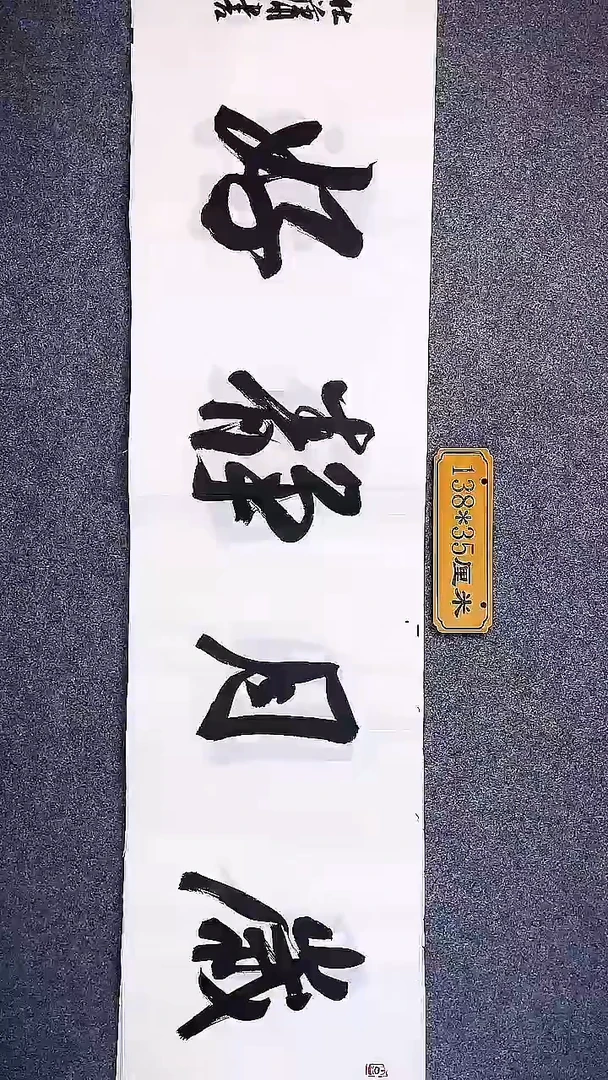 歲月静好
138*35厘米